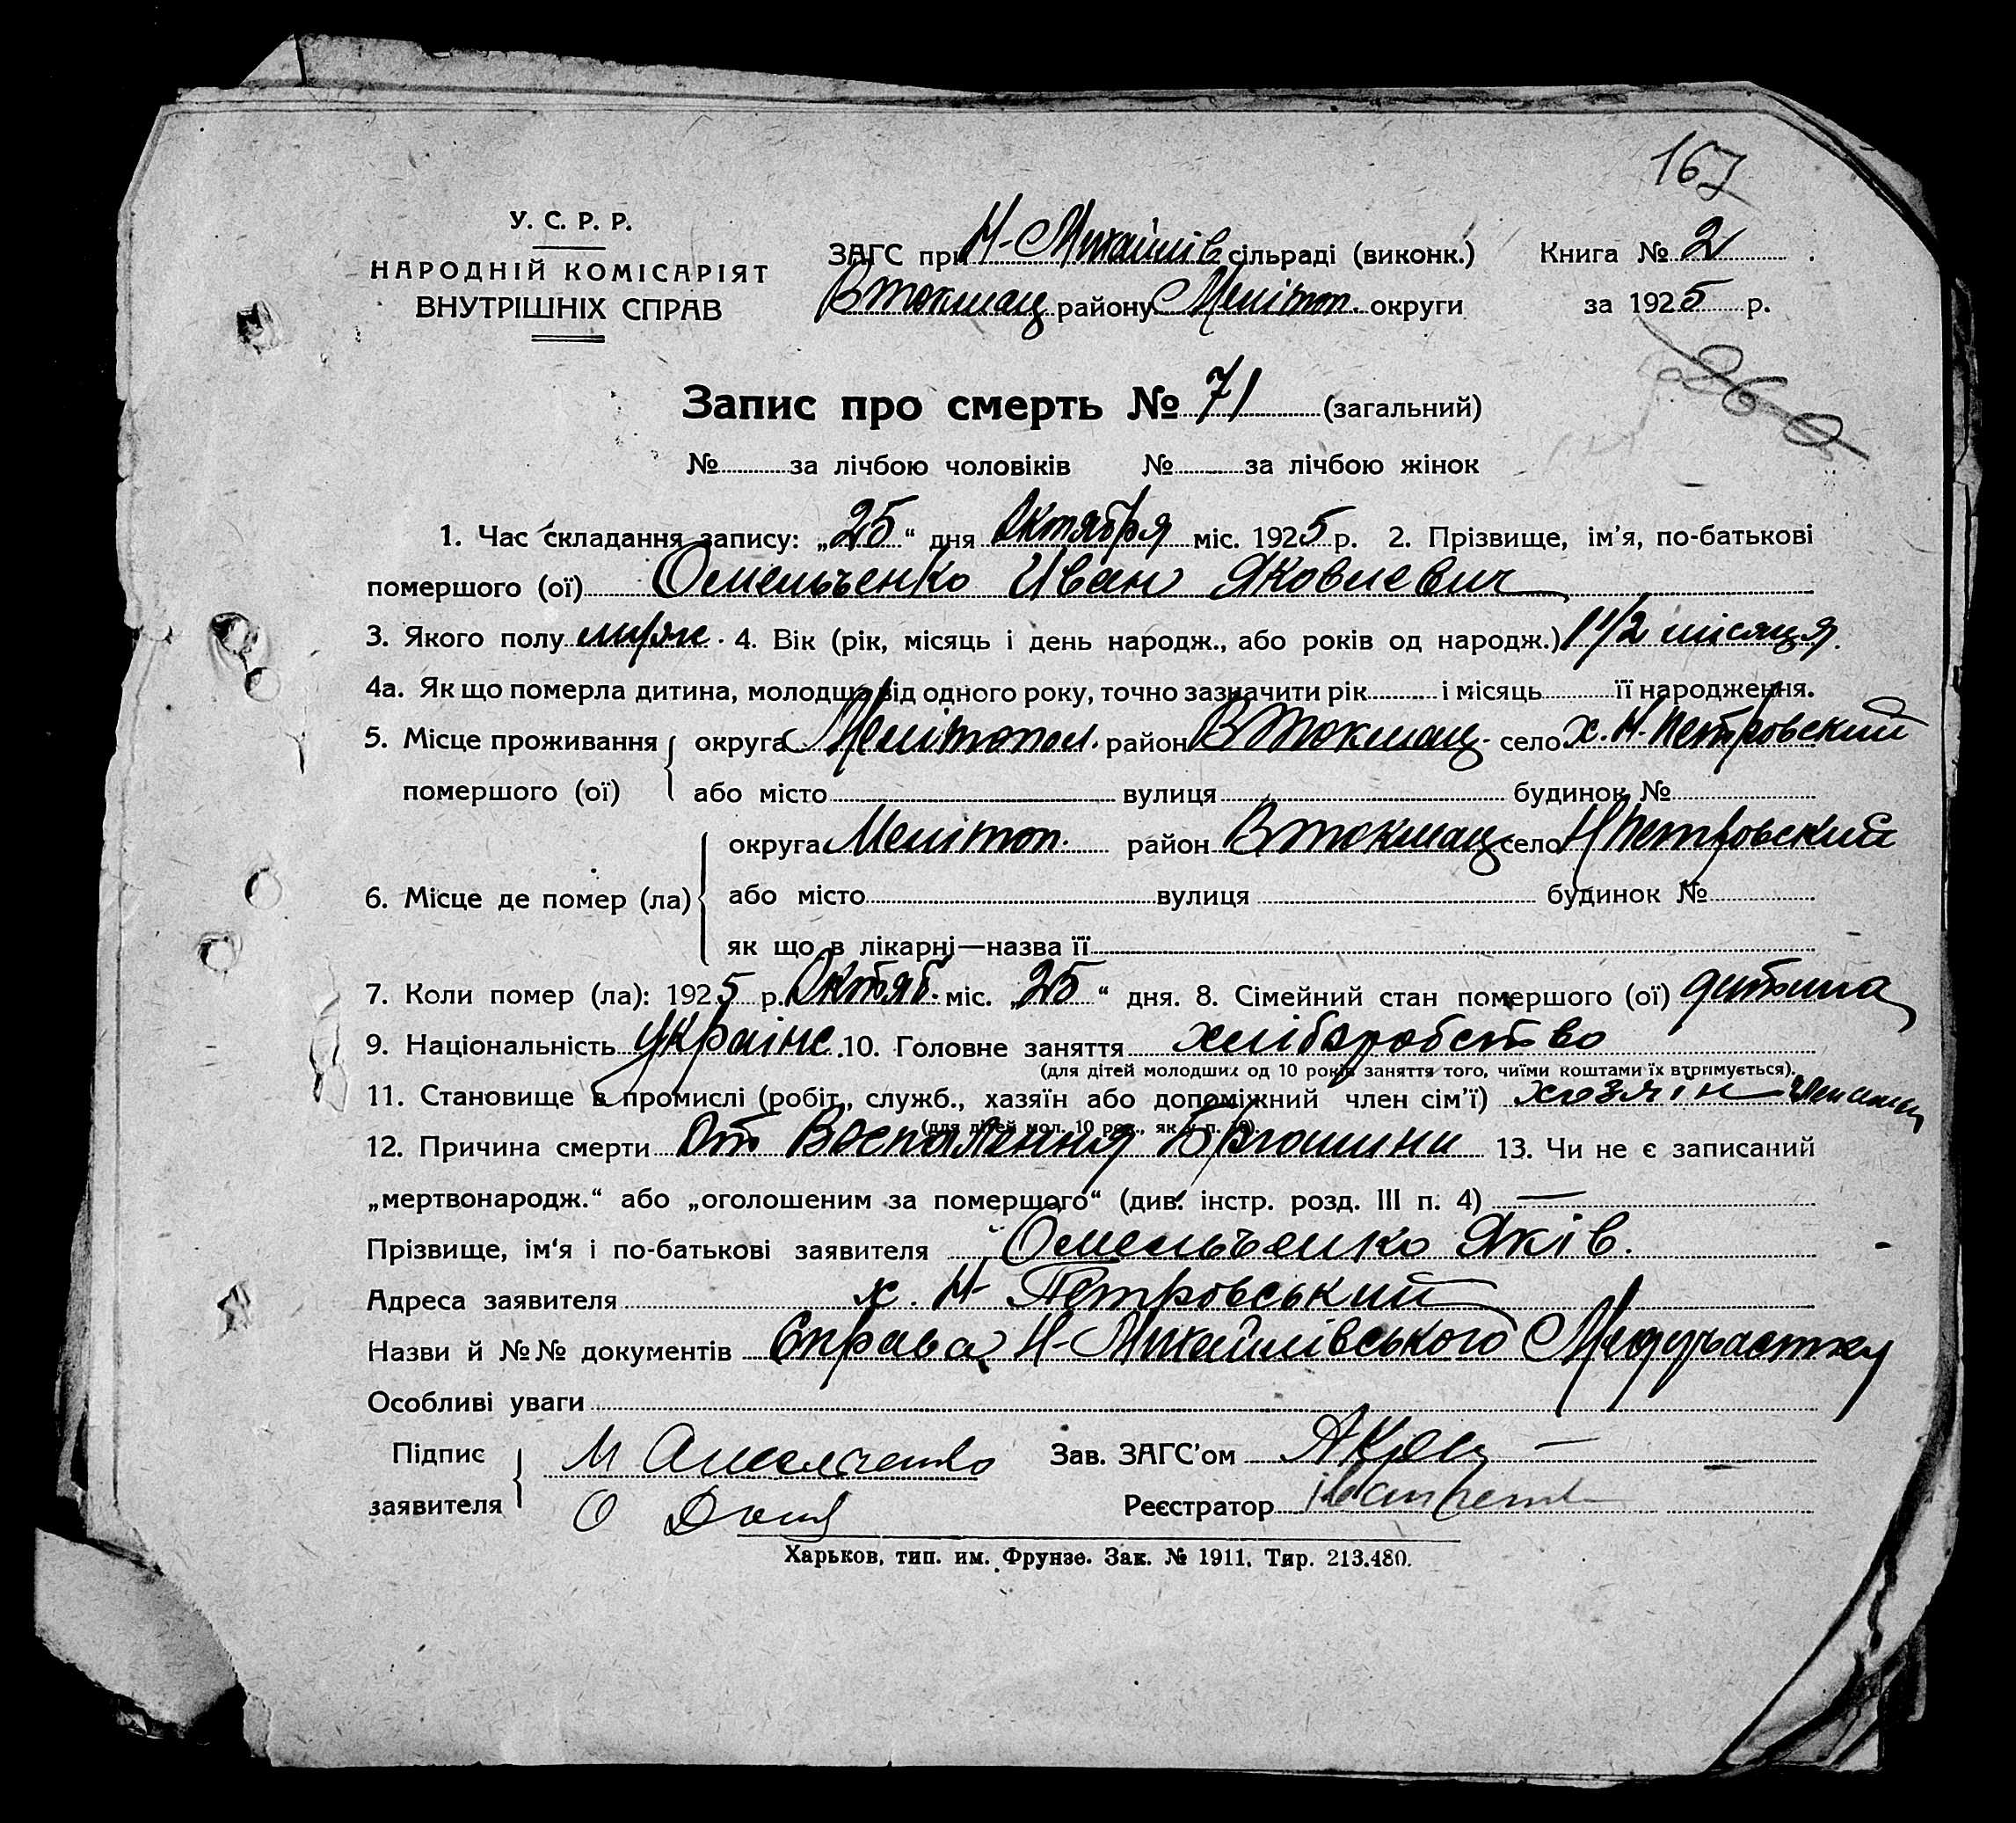 167
У. С. Р. Р.
НАРОДНІЙ КОМІСАРІЯТ
ВНУТРІШНІХ СПРАВ
ЗАГС при Н-Михайлів сільраді (виконк.) Книга № 2
В Токмац району Мелітоп. округи за 1925 р.
Запис про смерть № 71 (загальний)
№ за лічбою чоловіків № за лічбою жінок
1. Час складання запису: „25“ дня Октября міс. 1925 р. 2. Прізвище, ім'я, по-батькові
помершого (ої) Омельченко Иван Яковлевич
3. Якого полу муж. 4. Вік (рік, місяць і день народж., або років од народж.) 1 1/2 місяця.
4а. Як що померла дитина, молодша від одного року, точно зазначити рік і місяць її народження.
5. Місце проживання округа Мелітопол. район В Токмац. село х. Н. Петровский
помершого (ої) або місто вулиця будинок №
округа Мелітоп. район В Токмац село Н Петровский
6. Місце де помер (ла) або місто вулиця будинок №
як що в лікарні—назва її
7. Коли помер (ла): 1925 р. Октяб. міс. „25“ дня. 8. Сімейний стан помершого (ої) дитина
9. Національність Україне. 10. Головне заняття хліборобство
(для дітей молодших од 10 років заняття того, чиїми коштами їх втримується).
11. Становище в промислі (робіт., служб., хазяїн або допоміжний член сім'ї) хозяїн
(для дітей мол. 10 рок., як у п. 10).
12. Причина смерти От Воспаленния Брюшини 13. Чи не є записаний
„мертвонародж.“ або „оголошеним за помершого“ (див. інстр. розд. III п. 4) —
Прізвище, ім'я і по-батькові заявителя Омельченко Яків.
Адреса заявителя х. Н- Петровський
Назви й №№ документів Справа Н-Михайлівського Медучастку
Особливі уваги
Підпис Зав. ЗАГС'ом
заявителя Реєстратор
Харьков, тип. им. Фрунзе. Зак. № 1911. Тир. 213.480.